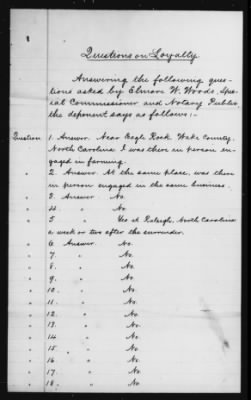 Questions on Loyalty.
Answering the following ques-
tions asked by Elmore W. Woods, Spe-
cial Commissioner and Notary Public
the deponent says as follows:-
Question 1. Answer. Near Eagle Rock, Wake County,
North Carolina. I was there in person en-
gaged in farming.
" 2. Answer. At the same place, was there
in person engaged in the same business.
" 3. Answer. No.
" 4. " No.
" 5 " Yes at Raleigh, North Carolina
a week or two after the surrender.
" 6 Answer. No.
" 7 " No.
" 8. " No.
" 9. " No.
" 10. " No.
" 11. " No.
" 12. " No.
" 13. " No.
" 14. " No.
" 15. " No.
" 16 " No.
" 17. " No.
" 18. " No.